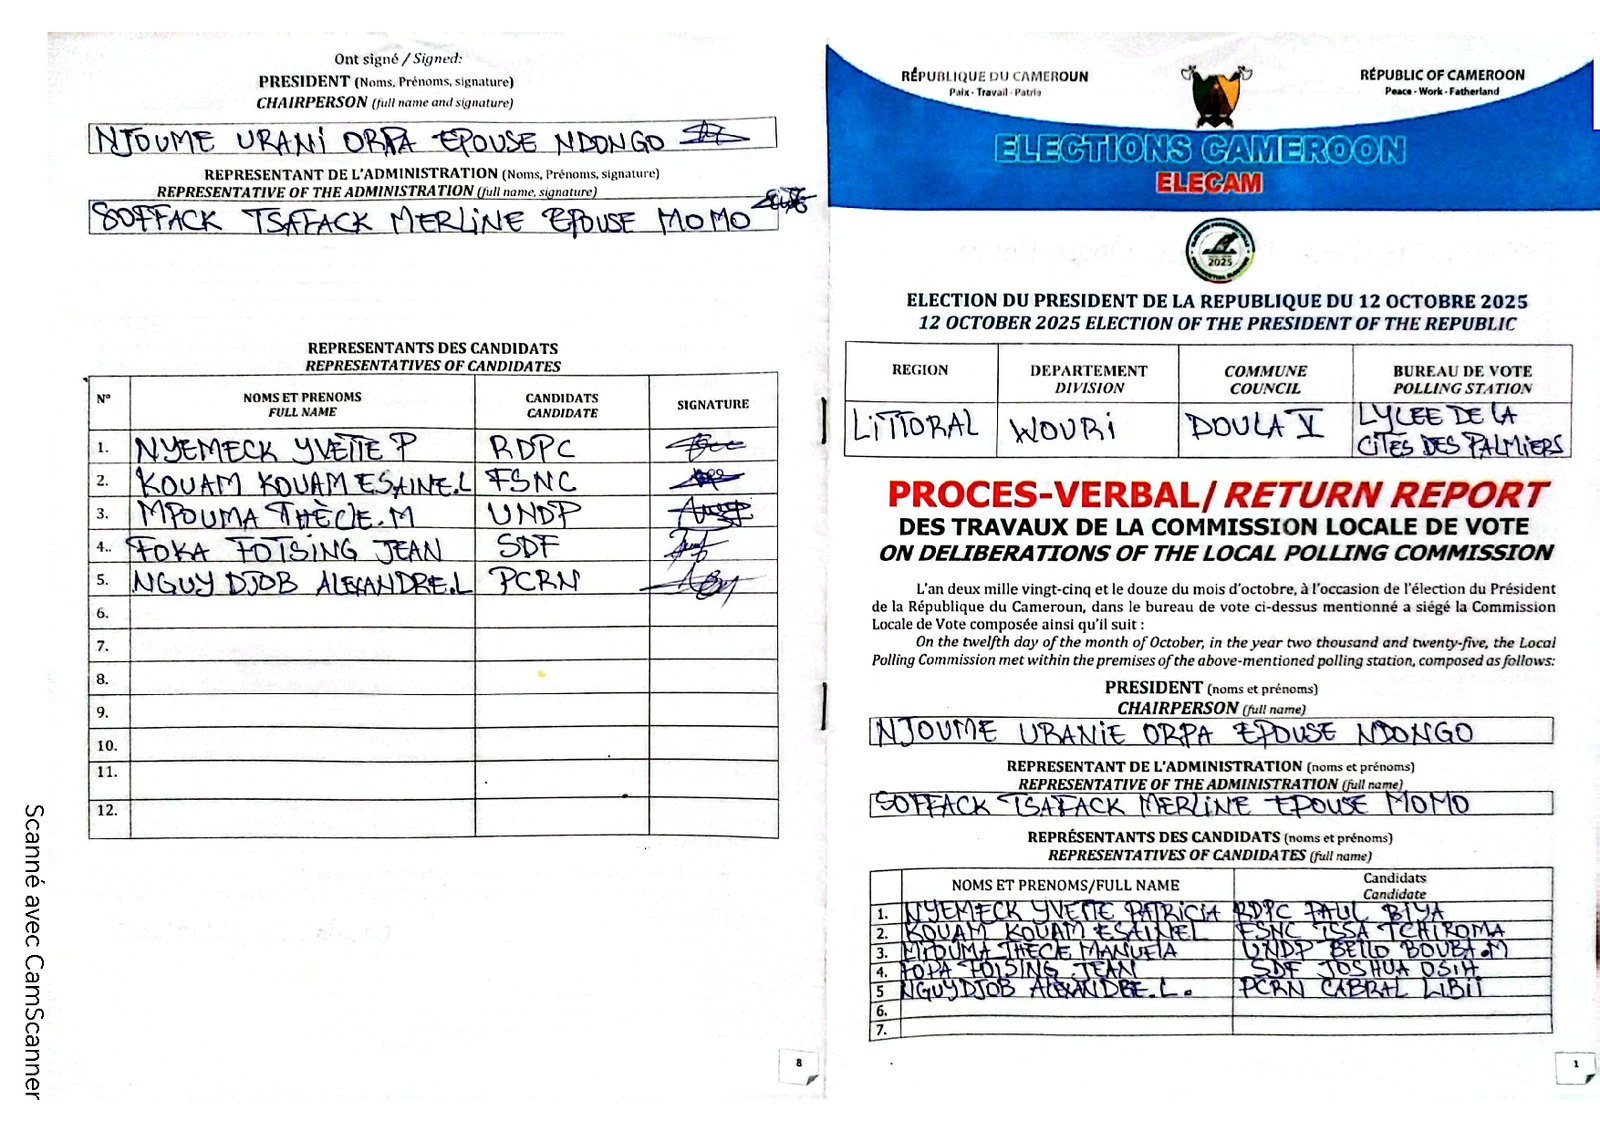 Ont signé / Signed:
PRESIDENT (Noms, Prénoms, signature)
CHAIRPERSON (full name and signature)
NJOUME URANI ORPA EPOUSE NDONGO
REPRESENTANT DE L'ADMINISTRATION (Noms, Prénoms, signature)
REPRESENTATIVE OF THE ADMINISTRATION (full name, signature)
SOFFACK TSAFACK MERLINE EPOUSE MOMO
REPRESENTANTS DES CANDIDATS
REPRESENTATIVES OF CANDIDATES
N° NOMS ET PRENOMS FULL NAME CANDIDATS CANDIDATE SIGNATURE
1. NYEMECK YVETTE P RDPC
2. KOUAM KOUAM ESAINE.L FSNC
3. MPOUMA THÈCLE.M UNDP
4.. FOKA FOTSING JEAN SDF
5. NGUY DJOB ALEXANDRE.L PCRN
6.
7.
8.
9.
10.
11.
12.
8
Scanné avec CamScanner
RÉPUBLIQUE DU CAMEROUN
Paix - Travail - Patrie
RÉPUBLIC OF CAMEROON
Peace - Work - Fatherland
ELECTIONS CAMEROON
ELECAM
2025
ELECTION DU PRESIDENT DE LA REPUBLIQUE DU 12 OCTOBRE 2025
12 OCTOBER 2025 ELECTION OF THE PRESIDENT OF THE REPUBLIC
REGION DEPARTEMENT DIVISION COMMUNE COUNCIL BUREAU DE VOTE POLLING STATION
LITTORAL WOURI DOULA V LYCEE DE LA CITES DES PALMIERS
PROCES-VERBAL/ RETURN REPORT
DES TRAVAUX DE LA COMMISSION LOCALE DE VOTE
ON DELIBERATIONS OF THE LOCAL POLLING COMMISSION
L'an deux mille vingt-cinq et le douze du mois d'octobre, à l'occasion de l'élection du Président
de la République du Cameroun, dans le bureau de vote ci-dessus mentionné a siégé la Commission
Locale de Vote composée ainsi qu'il suit :
On the twelfth day of the month of October, in the year two thousand and twenty-five, the Local
Polling Commission met within the premises of the above-mentioned polling station, composed as follows:
PRESIDENT (noms et prénoms)
CHAIRPERSON (full name)
NJOUME URANIE ORPA EPOUSE NDONGO
REPRESENTANT DE L'ADMINISTRATION (noms et prénoms)
REPRESENTATIVE OF THE ADMINISTRATION (full name)
SOFFACK TSAFACK MERLINE EPOUSE MOMO
REPRÉSENTANTS DES CANDIDATS (noms et prénoms)
REPRESENTATIVES OF CANDIDATES (full name)
NOMS ET PRENOMS/FULL NAME Candidats Candidate
1. NYEMECK YVETTE PATRICIA RDPC PAUL BIYA
2. KOUAM KOUAM ESAINEL FSNC ISSA TCHIROMA
3. MPOUMA THECE MANUELA UNDP BELLO BOUBA.M
4. FOPA FOTSING JEAN SDF JOSHUA OSIH
5 NGUYDJOB ALEXANDRE.L. PCRN CABRAL LIBII
6.
7.
1